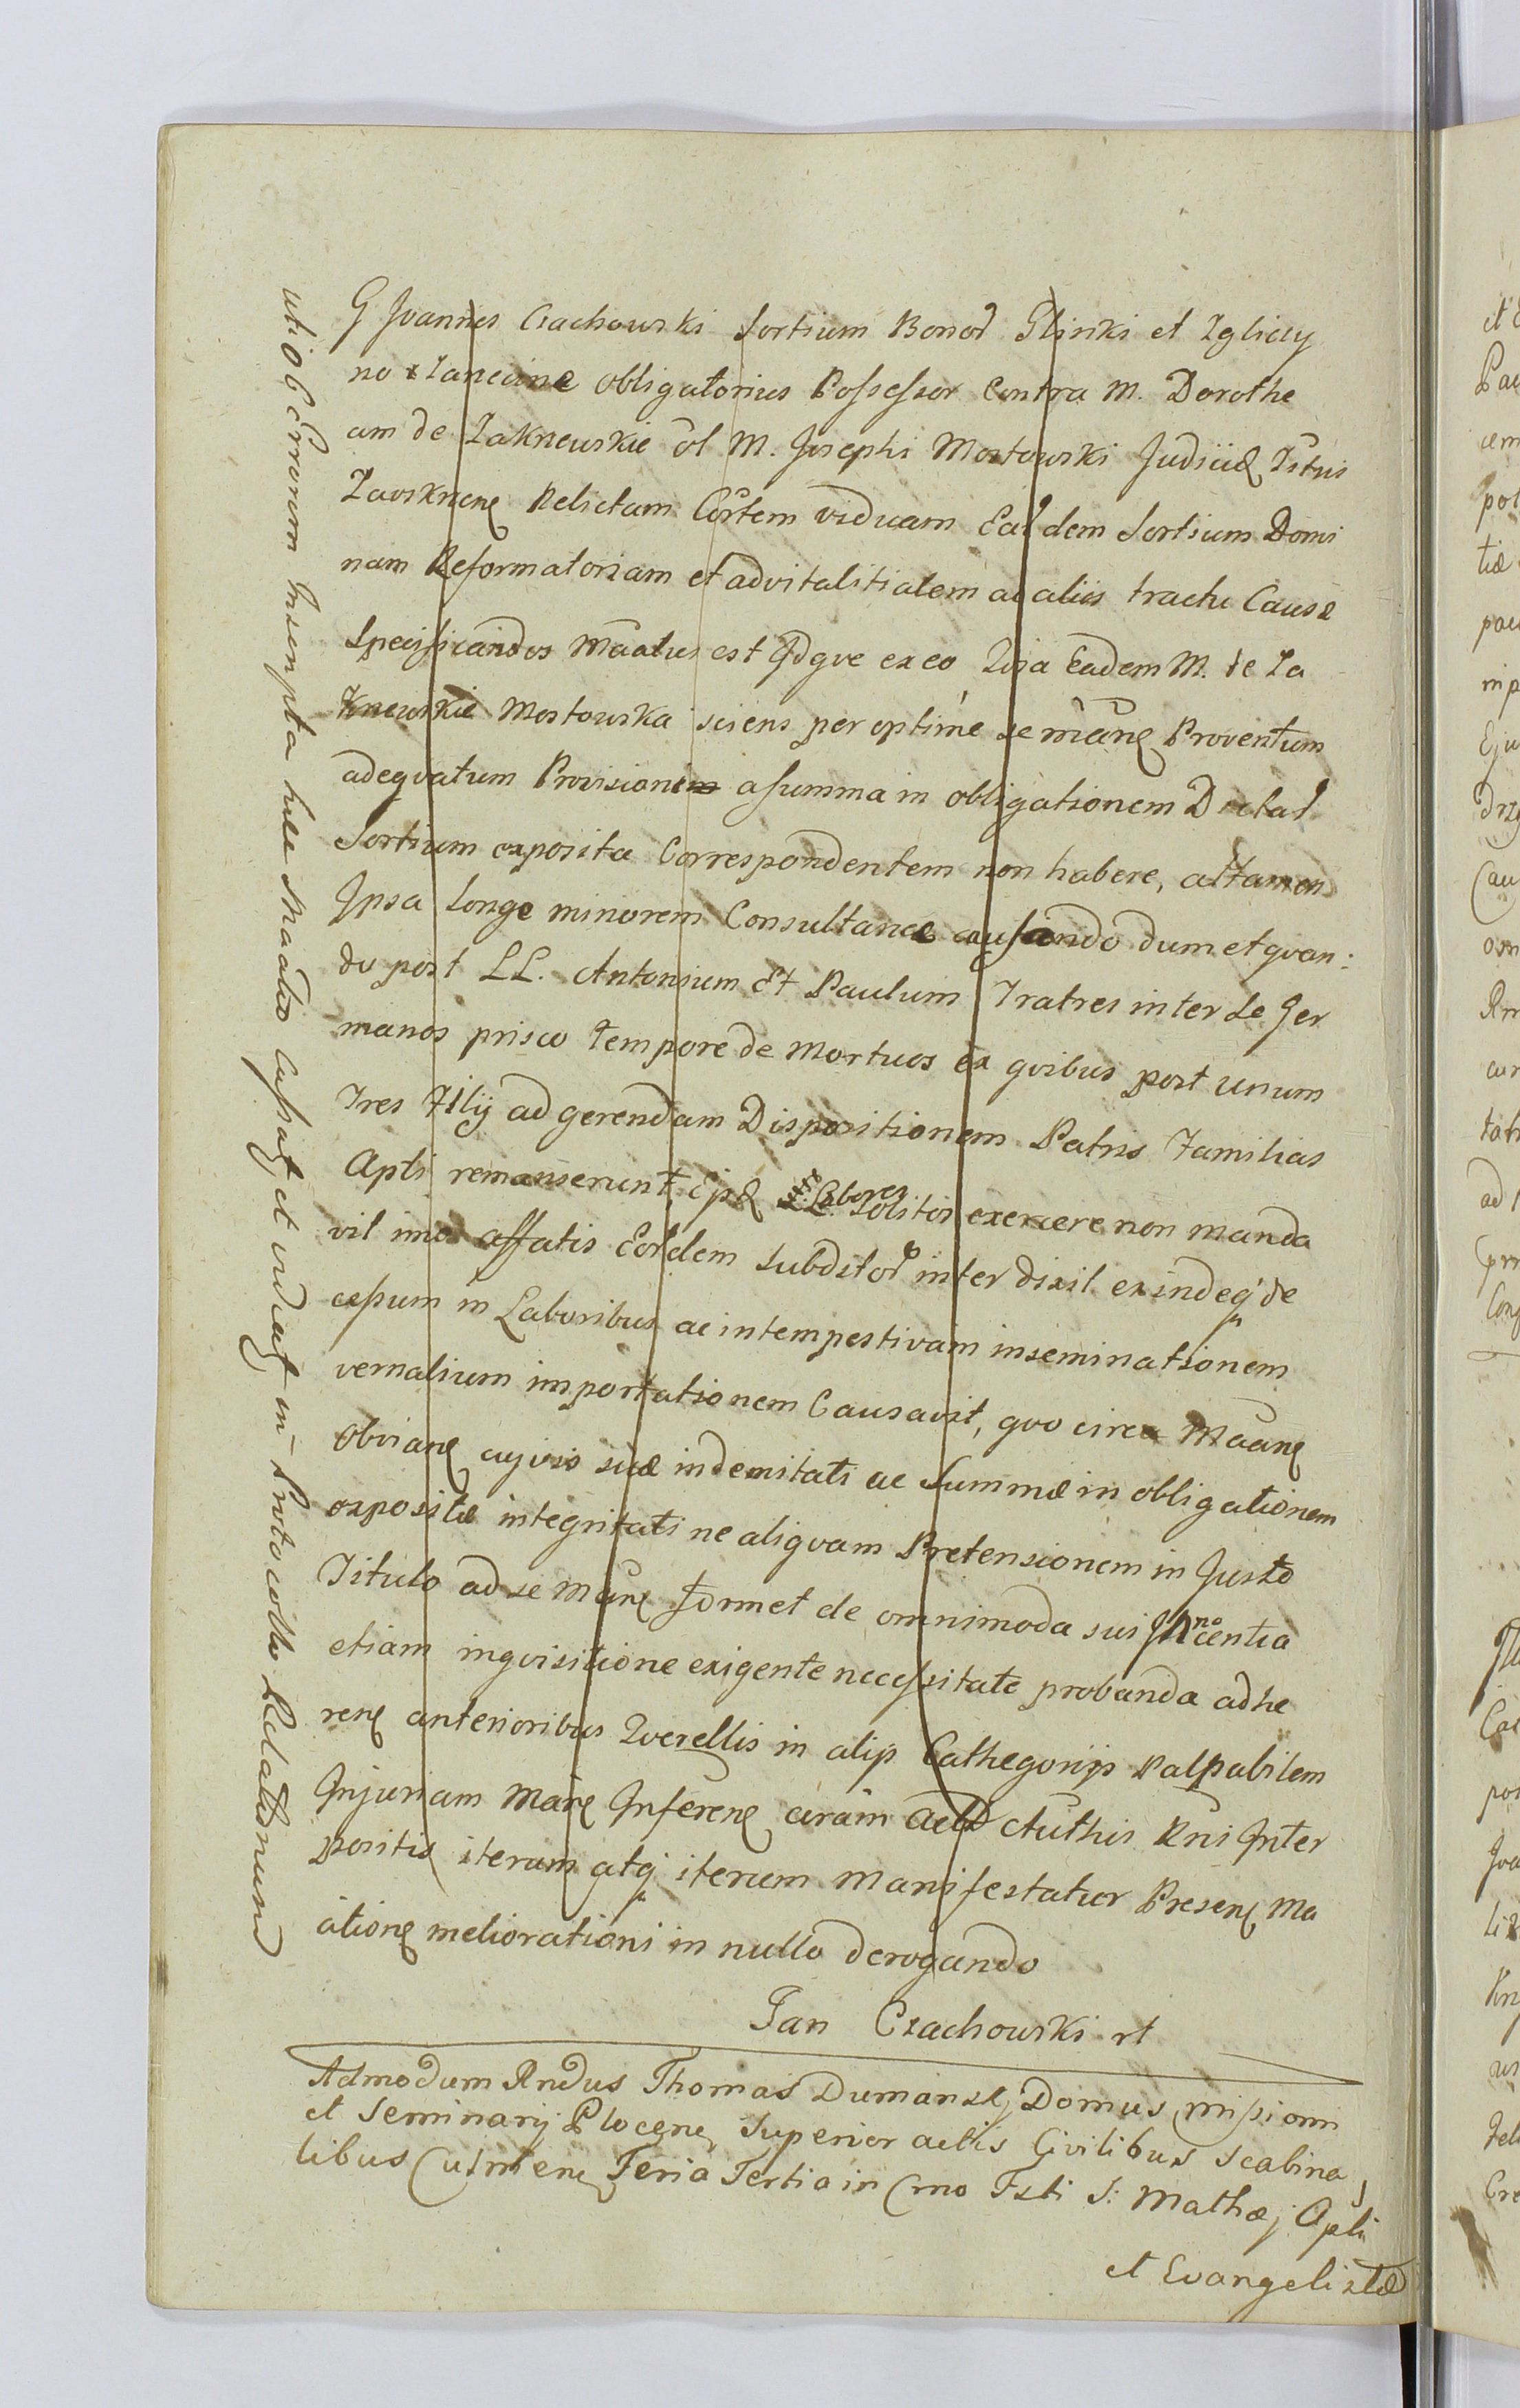 G Joannes Czachowski Sortium Bonor Glinki et Zgliczy
no Zanecinæ obligatorius Possessor Contra M. Dorothe
am de Zaknewskie ol M. Josephi Mostowski Judicis Tstris
Zawsknen Relictam Cortem viduam Eardem Sortium Domi
nam Reformatoriam et advitalitialem ac alios tractu Causæ
Specificandos maatus est Idqve ex eo Qvia Eadem M. de Za
knewskie Mostowska sciens per optime se mane Proventum
adeqvatum Provisioni a summa in obligationem Dictar
Sortium exposita Correspondentem non habere, attamen
Ipsa longe minorem Consultance causando dum et qvan:
do post LL. Antonium Et Paulum Fratres inter se Ger
manos prisco tempore de mortuos ex qvibus post unum
Tres Filij ad gerendam Dispositionem Patris Familias
Apti remanserunt, Labores solitos exercere non manda
vit imo affatis Eordem subditor inter dixit exindeq de
cessum in Laboribus ac intempestivam inseminationem
vernalium importationem Causavit, qvo circa Maane
obviane cujvis suæ indemitati ac Summæ in obligationem
expositæ integritati ne aliqvam Pretensionem in Justo
Titulo ad se mane formet de omnimoda sui Innocentia
etiam inqvisitione exigente necessitate probanda adhe
rene anterioribus Qverellis in alijs Cathegorijs Palpabilem
Injuriam mane Inferene curam Actis Authis Rnis Inter
positis iterum atq iterum Manifestatur Presene Ma
atione meliorationi in nullo derogando
Jan Czachowski rt
Admodum Rndus Thomas Dumansk Domus missionu
et Seminarij Plocene Superior actis Civilibus Scabina
libus Culmene Feria Tertia in Crno Fsti S: Mathæj Apli
et Evangelistæ
uti ob Errorem Inscripta hæc Maatio Cassatr et indatr in Protocollo Relationum